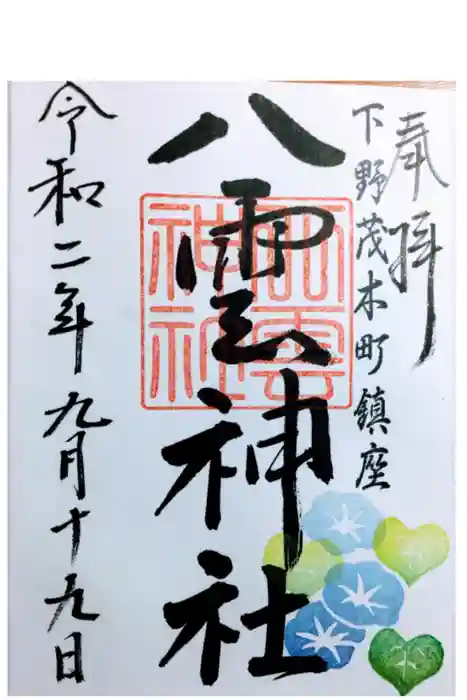 奉拝
下野茂木町鎮座
八雲神社
八雲神社
令和二年九月十九日